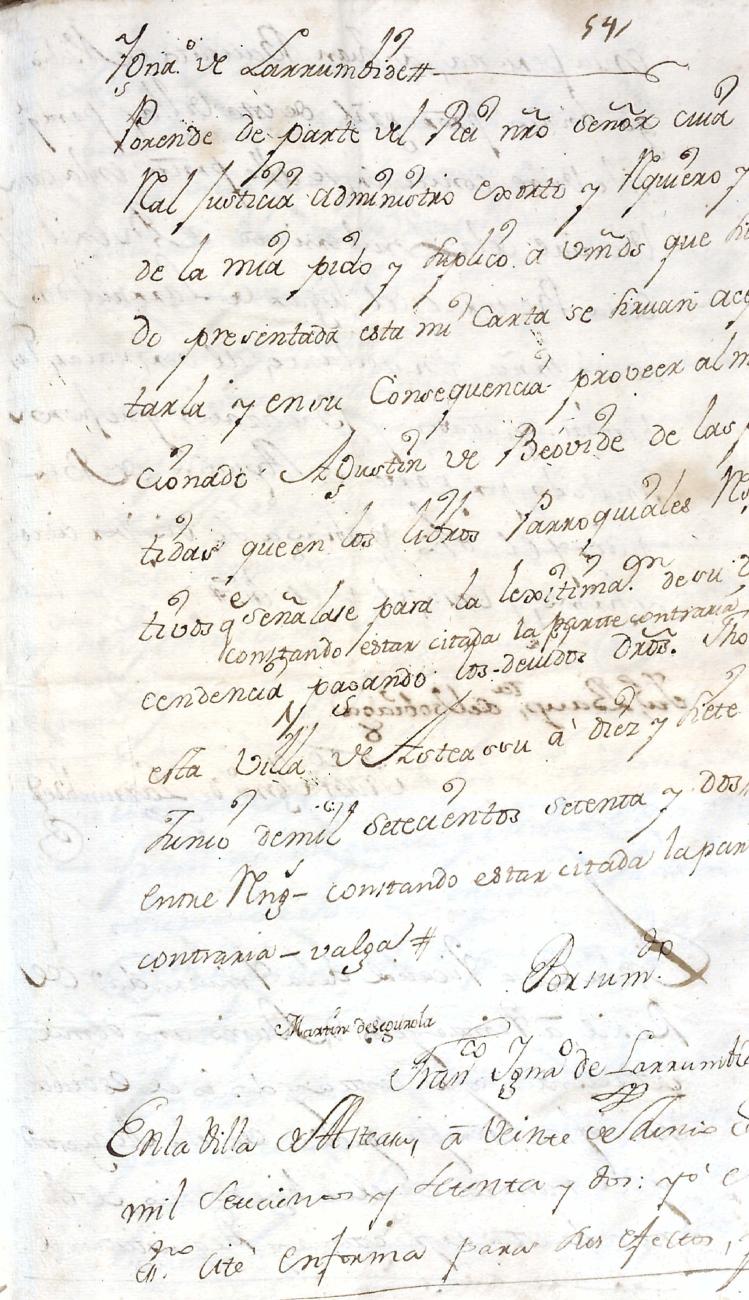 541
Ygna.º de Larrumbide#
Porende de parte del Rei nrõ señor cuia
Real Justicia administro exorto y Requiero y
de la mia pido y suplico a Vmds que
do presentada esta mi Carta se siruan acep
tarla y en su Consequencia proveer al m
cionado Agustin de Beovide de las p
tidas que en los libros Parroquiales Res
tivos q.e señalase para la lexitima.on de su
constando estar citada la partte contraria
cendencia pagando los devidos Drõs.
esta Villa de Asteassu à diez y siete
Junio de mil setecientos setenta y dos
Entre Reng- constando estar citada la par
contraria - valga #
Por su m.do
Martin de Segurola
Fran.co Ygna.o de Larrumbi
En la Villa de Asteasu, a veinte de Junio
mil setecientos y setenta y dos: yó e
ss.no cité en forma para los efectos,